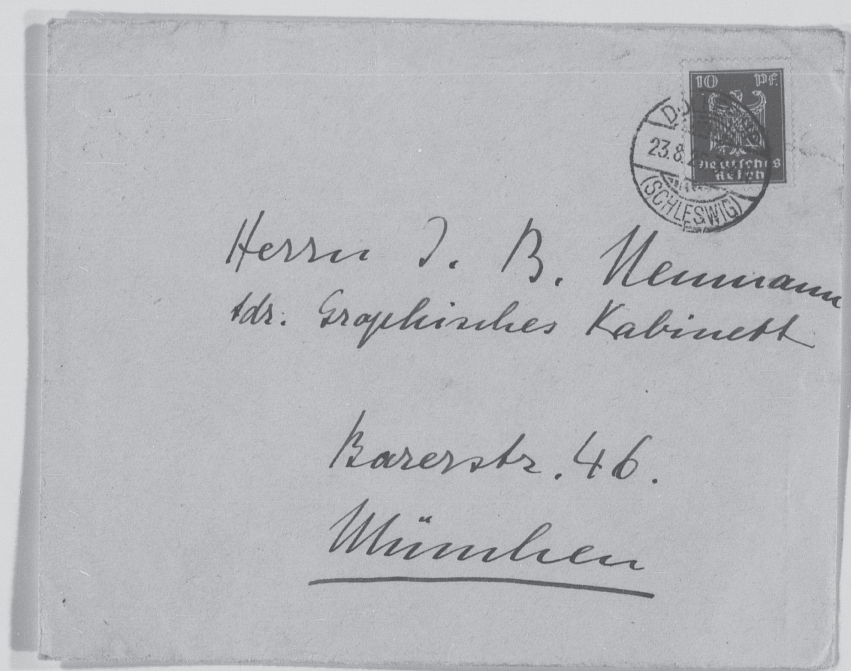 10 Pf.
Deutsches
Reich
23.8.
(SCHLESWIG)
Herrn J. B. Neumann
Adr. Graphisches Kabinett
Barerstr. 46.
München